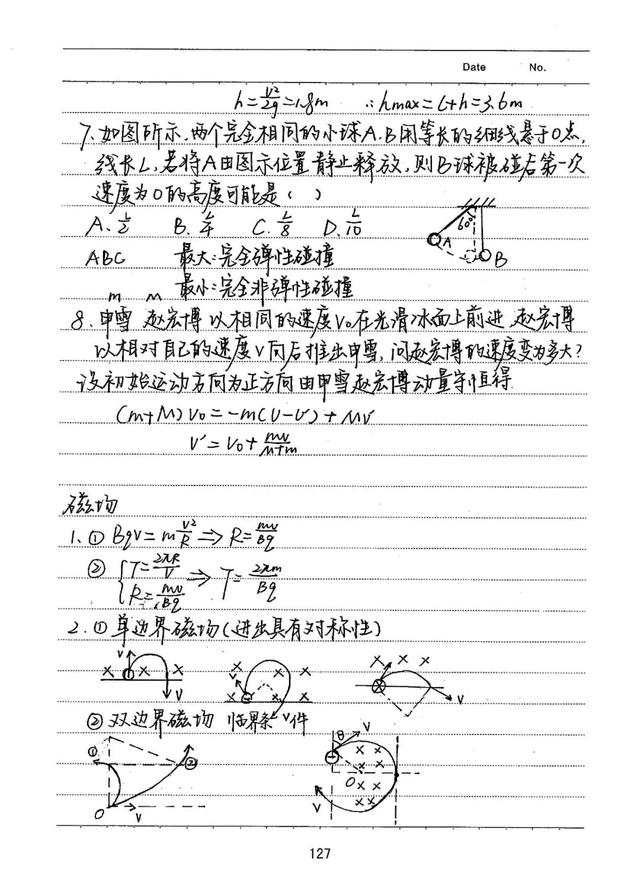 Date No.
h=v²/2g=1.8m ∴hmax=L+h=3.6m
7、如图所示,两个完全相同的小球A、B用等长的细线悬于O点,
线长L,若将A由图示位置静止释放,则B球被碰后第一次
速度为0的高度可能是( )
A、L/2 B、L/4 C、L/8 D、L/10
60° A B
ABC 最大:完全弹性碰撞
最小:完全非弹性碰撞
m M
8、申雪 赵宏博以相同的速度V₀在光滑冰面上前进,赵宏博
以相对自己的速度V向后推出申雪,问赵宏博的速度变为多大?
设初始运动方向为正方向由申雪赵宏博动量守恒得
(m+M)V₀=-m(V-V′)+MV′
V′=V₀+mv/M+m
磁场
1、① BqV=mV²/R⇒R=mv/Bq
② {T=2πR/V R=mv/Bq ⇒ T=2πm/Bq
2、①单边界磁场(进出具有对称性)
V × × × V
V × × × × V
× × × V
②双边界磁场 临界条件
① ② O V
θ V × × × × O × × × × V
127